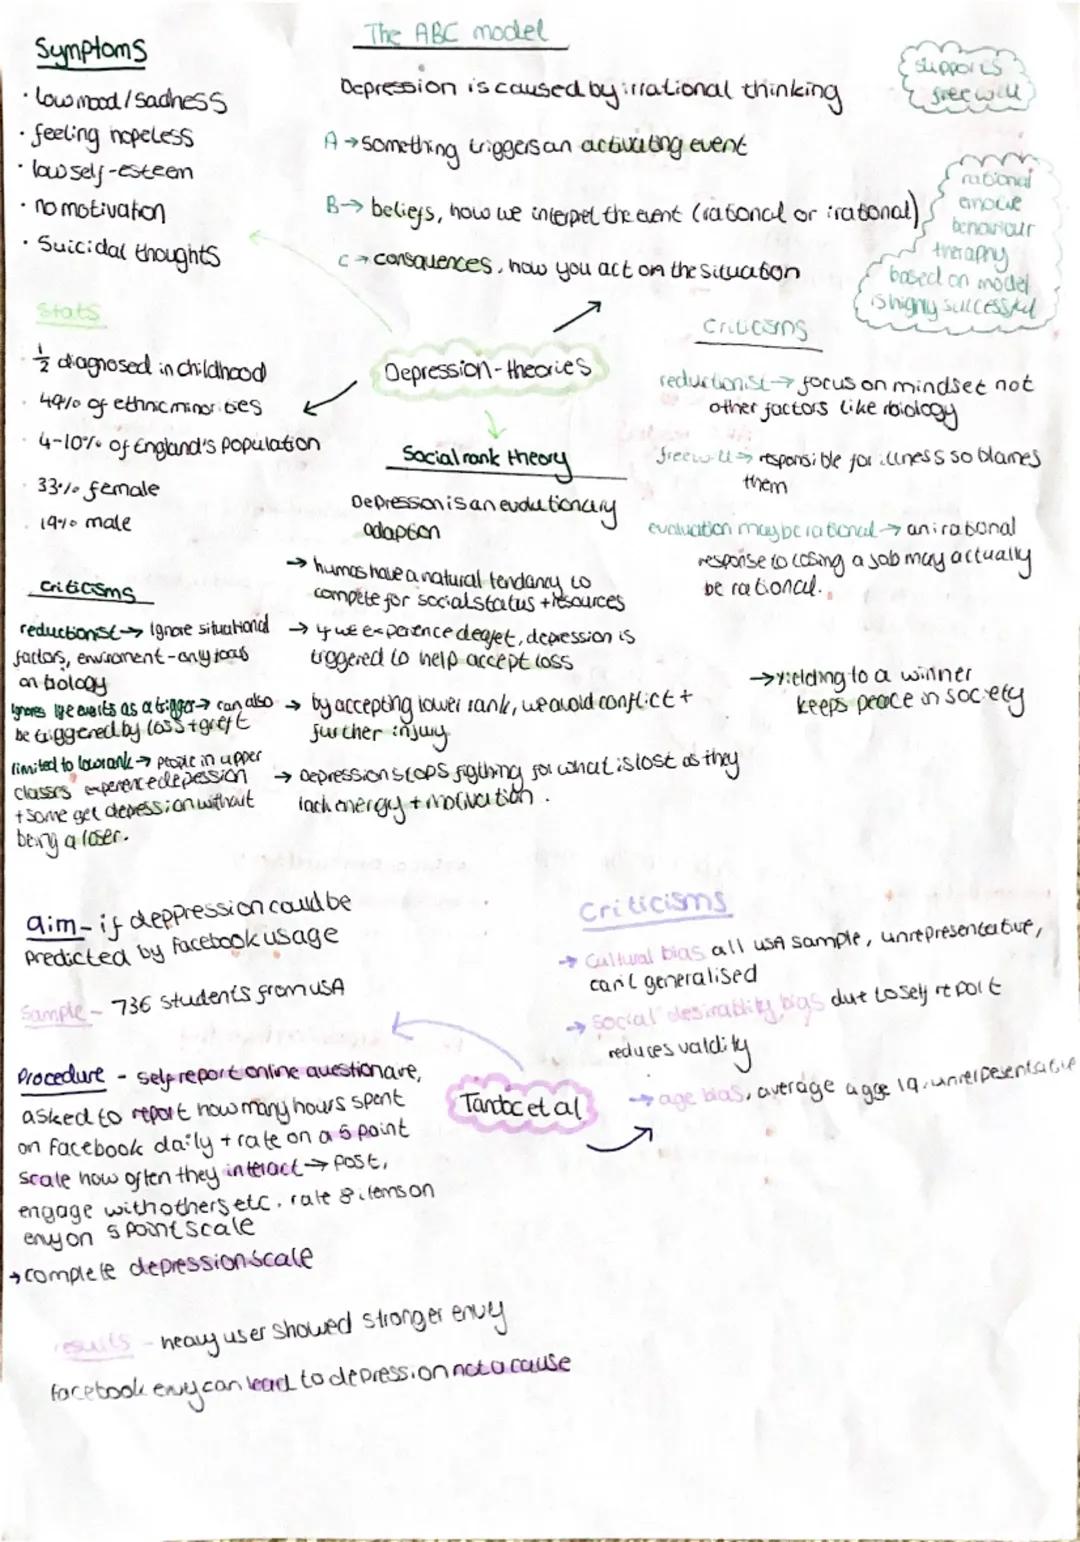 Symptoms
· low mood / sadness
· feeling hopeless
· low self-esteem
· no motivation
· Suicidal thoughts
The ABC model
Depression is caused by irrational thinking
A → something triggers an activating event
B → beliefs, how we interpret the event (rational or irational)
C → consquences, how you act on the situation
supports
free will
rational
emotive
behaviour
theraphy
based on model
is highly successful
Stats
· 1/2 diagnosed in childhood
· 49% of ethnic minorities
· 4-10% of England's population
· 33% female
· 19% male
Depression - theories
criticisms
reductionist → focus on mindset not
other factors like biology
freewill → responsible for illness so blames
them
evaluation may be rational → an irational
response to losing a job may actually
be rational.
Social rank theory
Depression is an evolutionary
adaption
→ humas have a natural tendancy to
compete for social status + resources
→ if we experience defeat, depression is
triggered to help accept loss
→ by accepting lower rank, we avoid conflict +
further injury
→ depression stops fighting for what is lost as they
lack energy + motivation.
→ yielding to a winner
keeps peace in society
criticisms
reductionist → ignore situational
factors, enviroment - only focus
on biology
ignores life events as a trigger → can also
be triggered by loss + grief
limited to low rank → people in upper
classes experence depession
+ some get depession without
being a loser.
aim - if deppression could be
predicted by facebook usage
Sample - 736 students from USA
Procedure - self-report online questionaire,
asked to report how many hours spent
on facebook daily + rate on a 5 point
scale how often they interact → post,
engage with others etc. rate 8 items on
envy on 5 point scale
→ complete depression scale
results - heavy user showed stronger envy
facebook envy can lead to depression not a cause
Tandoc et al
Criticisms
→ Cultural bias, all USA sample, unrepresentative,
can't generalised
→ social desirability bias due to self report
reduces valdity
→ age bias, average agge 19, unrerpesentative